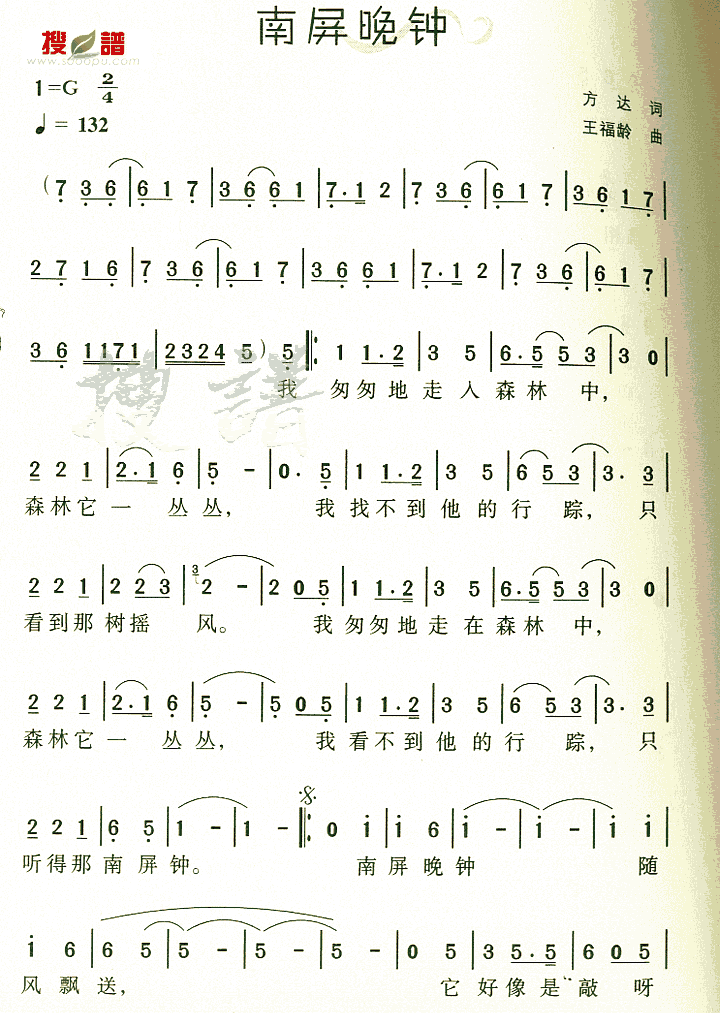 南屏晚钟
搜 譜
www.sooopu.com
1=G 2/4
♩= 132
方 达 词
王福龄 曲
(7 3 6 | 6 1 7 | 3 6 6 1 | 7·1 2 | 7 3 6 | 6 1 7 | 3 6 1 7 |
2 7 1 6 | 7 3 6 | 6 1 7 | 3 6 6 1 | 7·1 2 | 7 3 6 | 6 1 7 |
3 6 1171 | 2324 5) 5 |: 1 1·2 | 3 5 | 6·5 5 3 | 3 0 |
我 匆匆地走入森林中,
2 2 1 | 2·1 6 | 5 - | 0· 5 | 1 1·2 | 3 5 | 6 5 3 | 3· 3 |
森林它一 丛丛, 我找不到他的行 踪, 只
2 2 1 | 2 2 3 | 3 2 - | 2 0 5 | 1 1·2 | 3 5 | 6·5 5 3 | 3 0 |
看到那树摇 风。 我匆匆地走在森林中,
2 2 1 | 2·1 6 | 5 - | 5 0 5 | 1 1·2 | 3 5 | 6 5 3 | 3· 3 |
森林它一 丛丛, 我看不到他的行 踪, 只
2 2 1 | 6 5 | 1 - | 1 - :| 0 1 | 1 6 | 1 - | 1 1 |
听得那南屏钟。 南屏晚钟 随
1 6 | 6 5 | 5 - | 5 - | 5 - | 0 5 | 3 5·5 | 6 0 5 |
风飘送, 它好像是敲呀